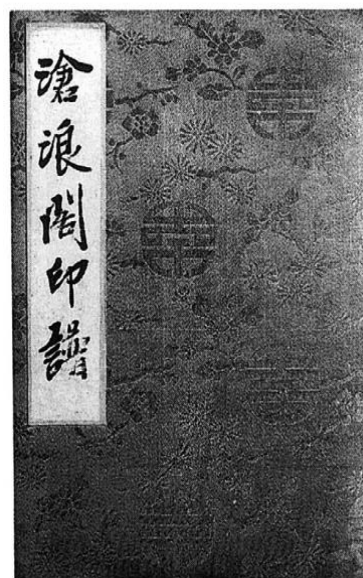 滄浪閣印譜